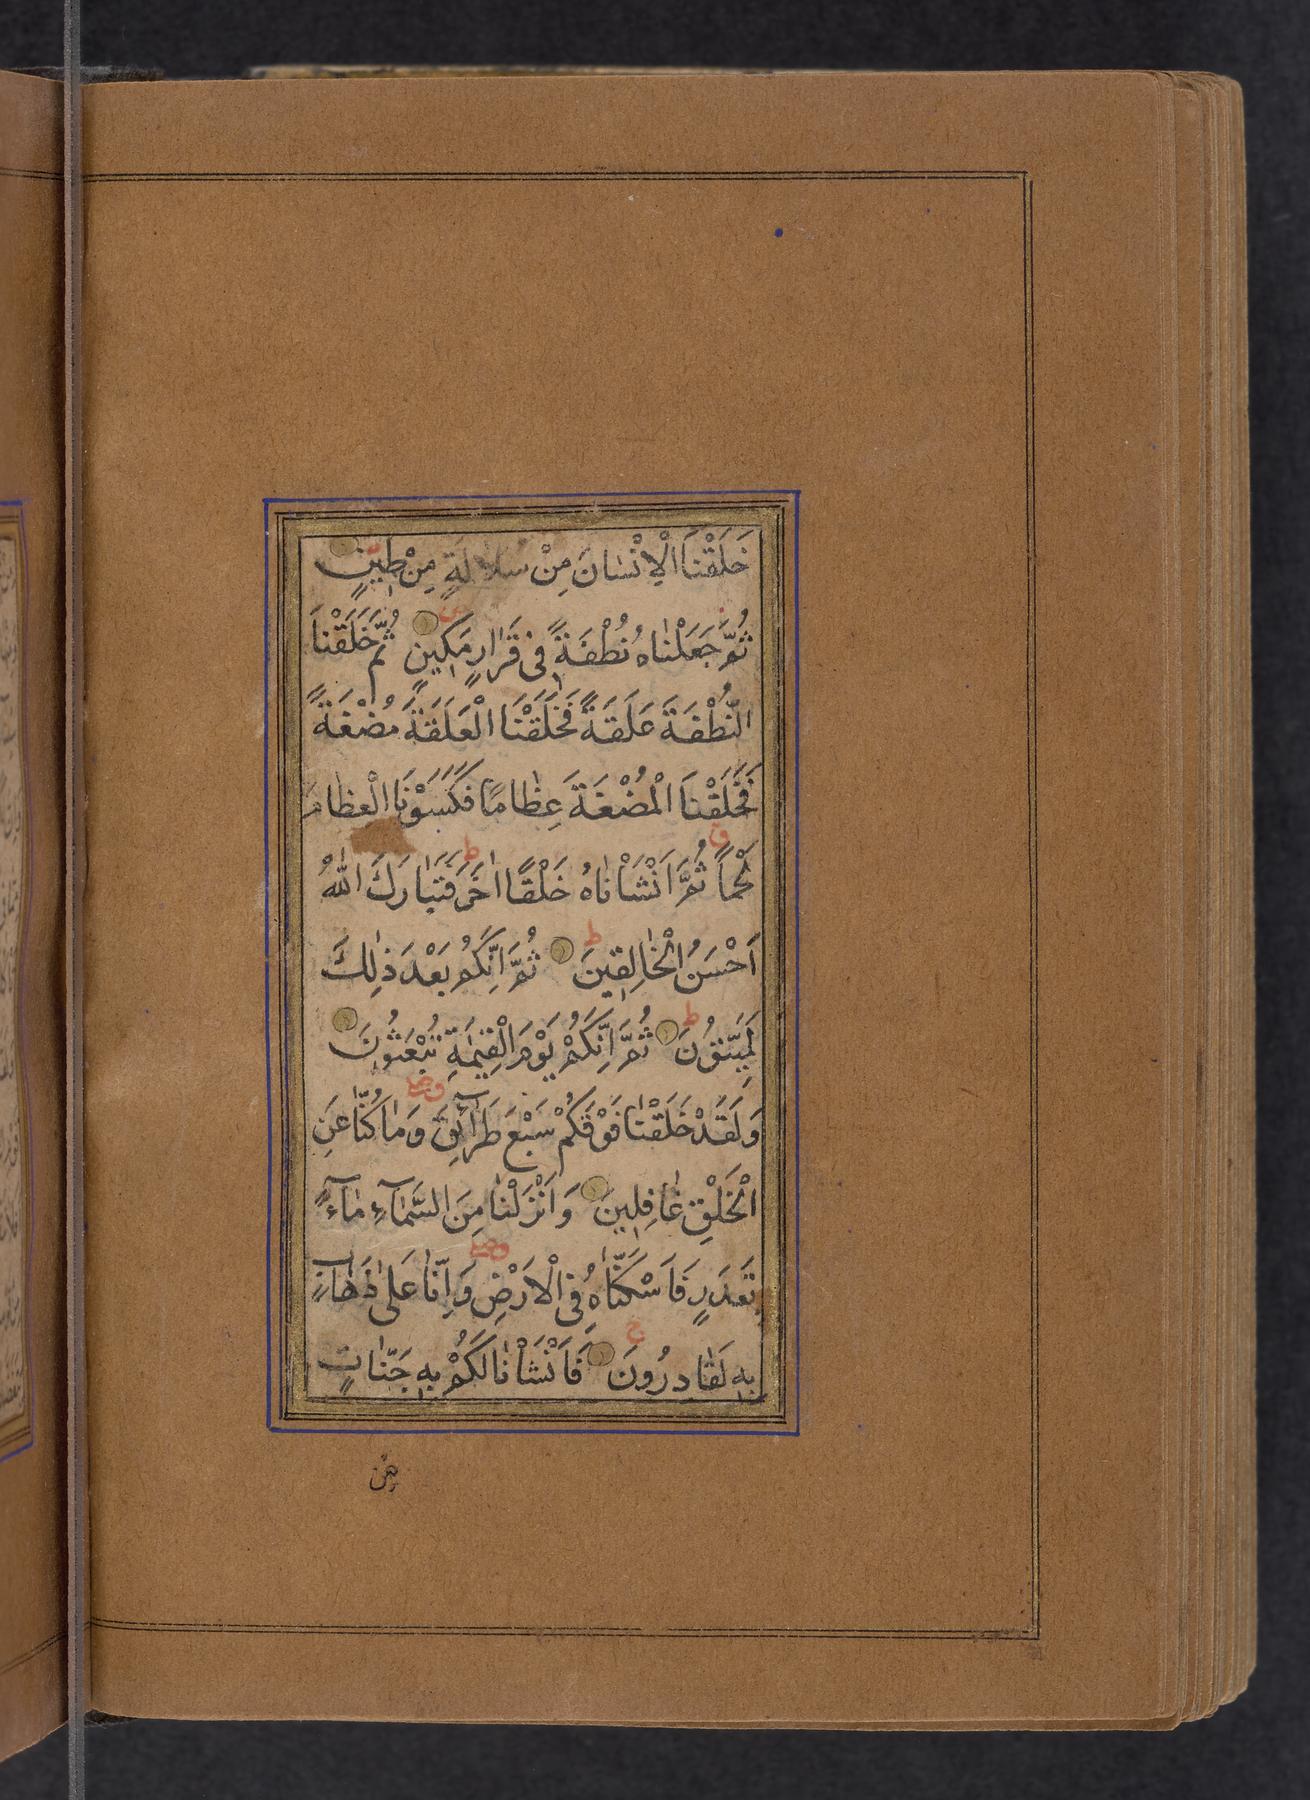 خَلَقْنَا الْاِنْسٰانَ مِنْ سُلٰالَةٍ مِنْ طٖينٍ
ثُمَّ جَعَلْنٰاهُ نُطْفَةً فٖى قَرٰارٍ مَكٖينٍ ثُمَّ خَلَقْنَا
النُّطْفَةَ عَلَقَةً فَخَلَقْنَا الْعَلَقَةَ مُضْغَةً
فَخَلَقْنَا الْمُضْغَةَ عِظٰامًا فَكَسَوْنَا الْعِظٰامَ
لَحْمًا ثُمَّ اَنْشَاْنٰاهُ خَلْقًا اٰخَرَ فَتَبٰارَكَ اللّٰهُ
اَحْسَنُ الْخٰالِقٖينَ ثُمَّ اِنَّكُمْ بَعْدَ ذٰلِكَ
لَمَيِّتُونَ ثُمَّ اِنَّكُمْ يَوْمَ الْقِيٰمَةِ تُبْعَثُونَ
وَلَقَدْ خَلَقْنٰا فَوْقَكُمْ سَبْعَ طَرٰٓائِقَ وَمٰا كُنّٰا عَنِ
الْخَلْقِ غٰافِلٖينَ وَاَنْزَلْنٰا مِنَ السَّمٰٓاءِ مٰٓاءً
بِقَدَرٍ فَاَسْكَنّٰاهُ فِى الْاَرْضِ وَاِنّٰا عَلٰى ذَهٰابٍ
بِهٖ لَقٰادِرُونَ فَاَنْشَاْنٰا لَكُمْ بِهٖ جَنّٰاتٍ
مِن